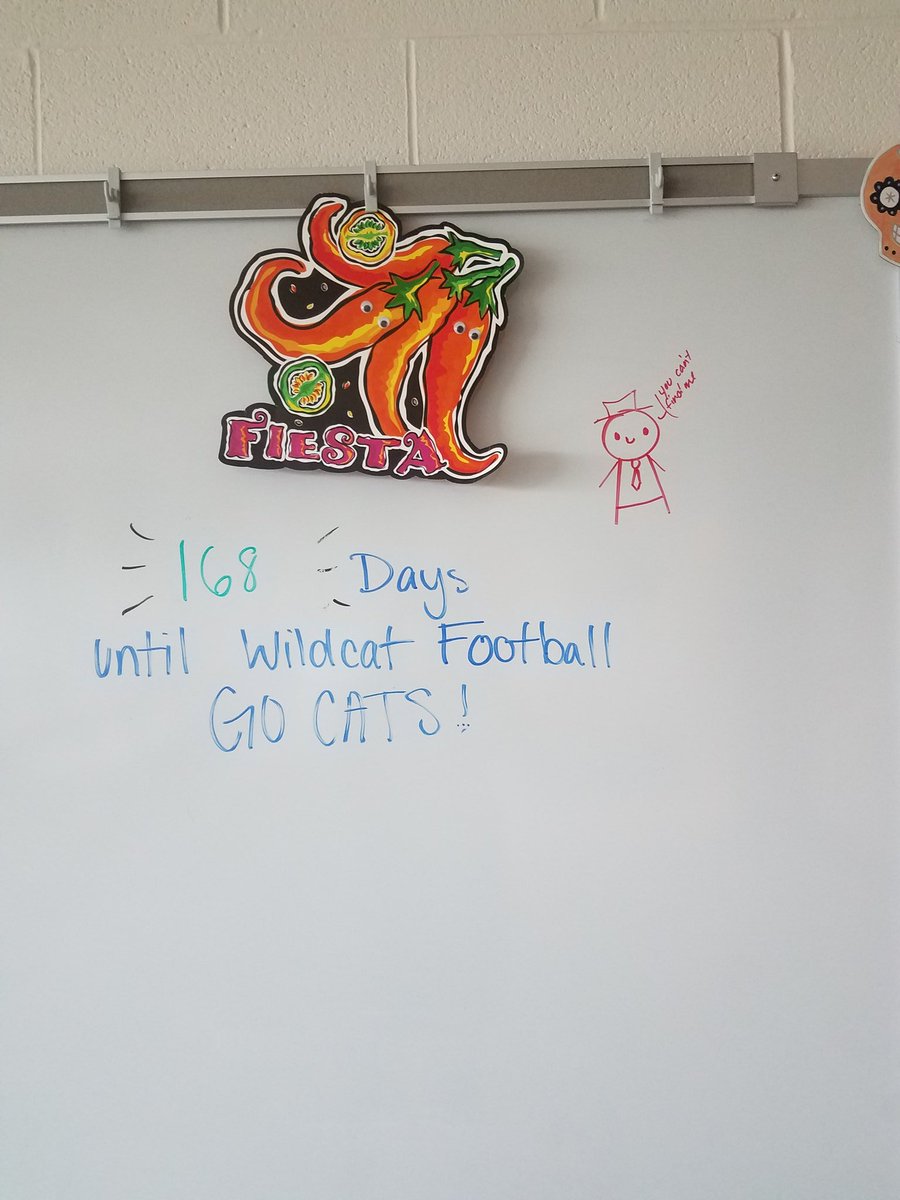 FIESTA
you can't
find me
168 Days
until Wildcat Football
GO CATS!